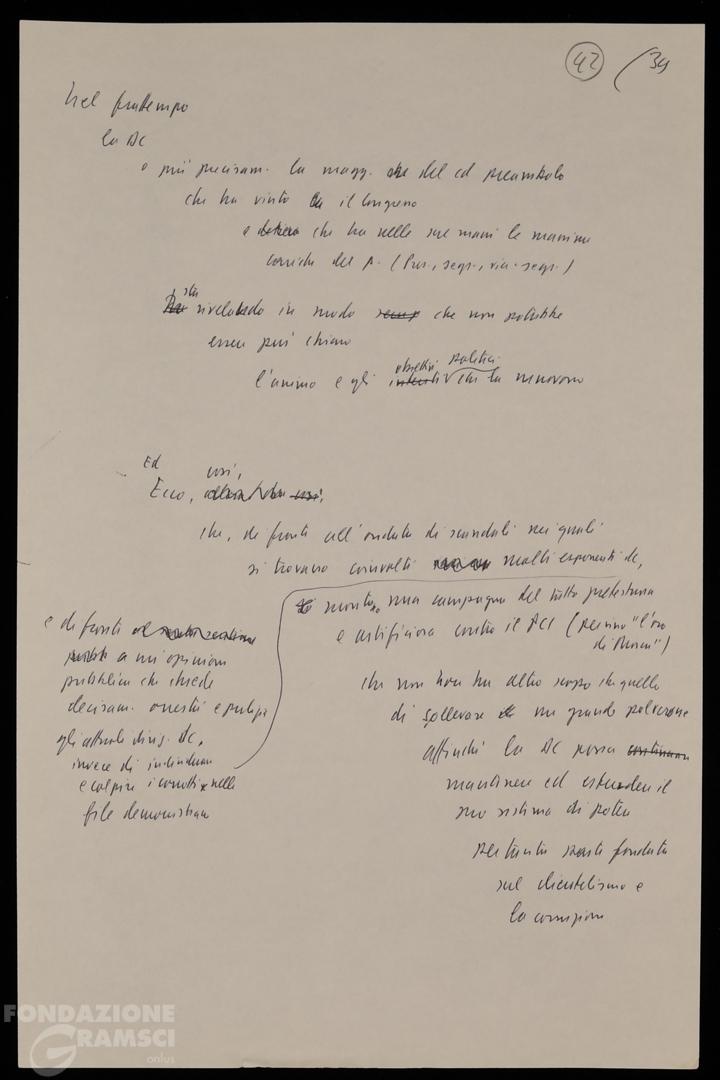 42 / 39
Nel frattempo
la DC
o più precisam. la magg. del cd preambolo
che ha vinto il Congresso
e che ha nelle sue mani le massime
cariche del P. (Pres., segr., vice-segr.)
sta rivelando in modo che non potrebbe
essere più chiaro
l'animo e gli obiettivi politici che la muovono
Ed
Ecco, così,
che, di fronte all'ondata di scandali nei quali
si trovano coinvolti molti esponenti dc,
e di fronte
a un'opinione
pubblica che chiede
decisam. onestà e pulizia
gli attuali dirig. DC,
invece di individuare
e colpire i corrotti nelle
file democristiane
montano una campagna del tutto pretestuosa
e artificiosa contro il PCI (persino "l'oro
di Mosca")
che non ha altro scopo che quello
di sollevare un grande polverone
affinché la DC possa
mantenere ed estendere il
suo sistema di potere
per tanta parte fondato
sul clientelismo e
la corruzione
FONDAZIONE
GRAMSCI
onlus